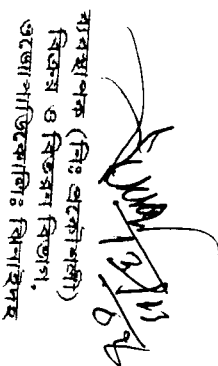 ব্যবস্থাপক (নিঃ প্রকৌশলী)
বিক্রয় ও বিতরণ বিভাগ,
ওজোপাডিকোলিঃ ঝিনাইদহ